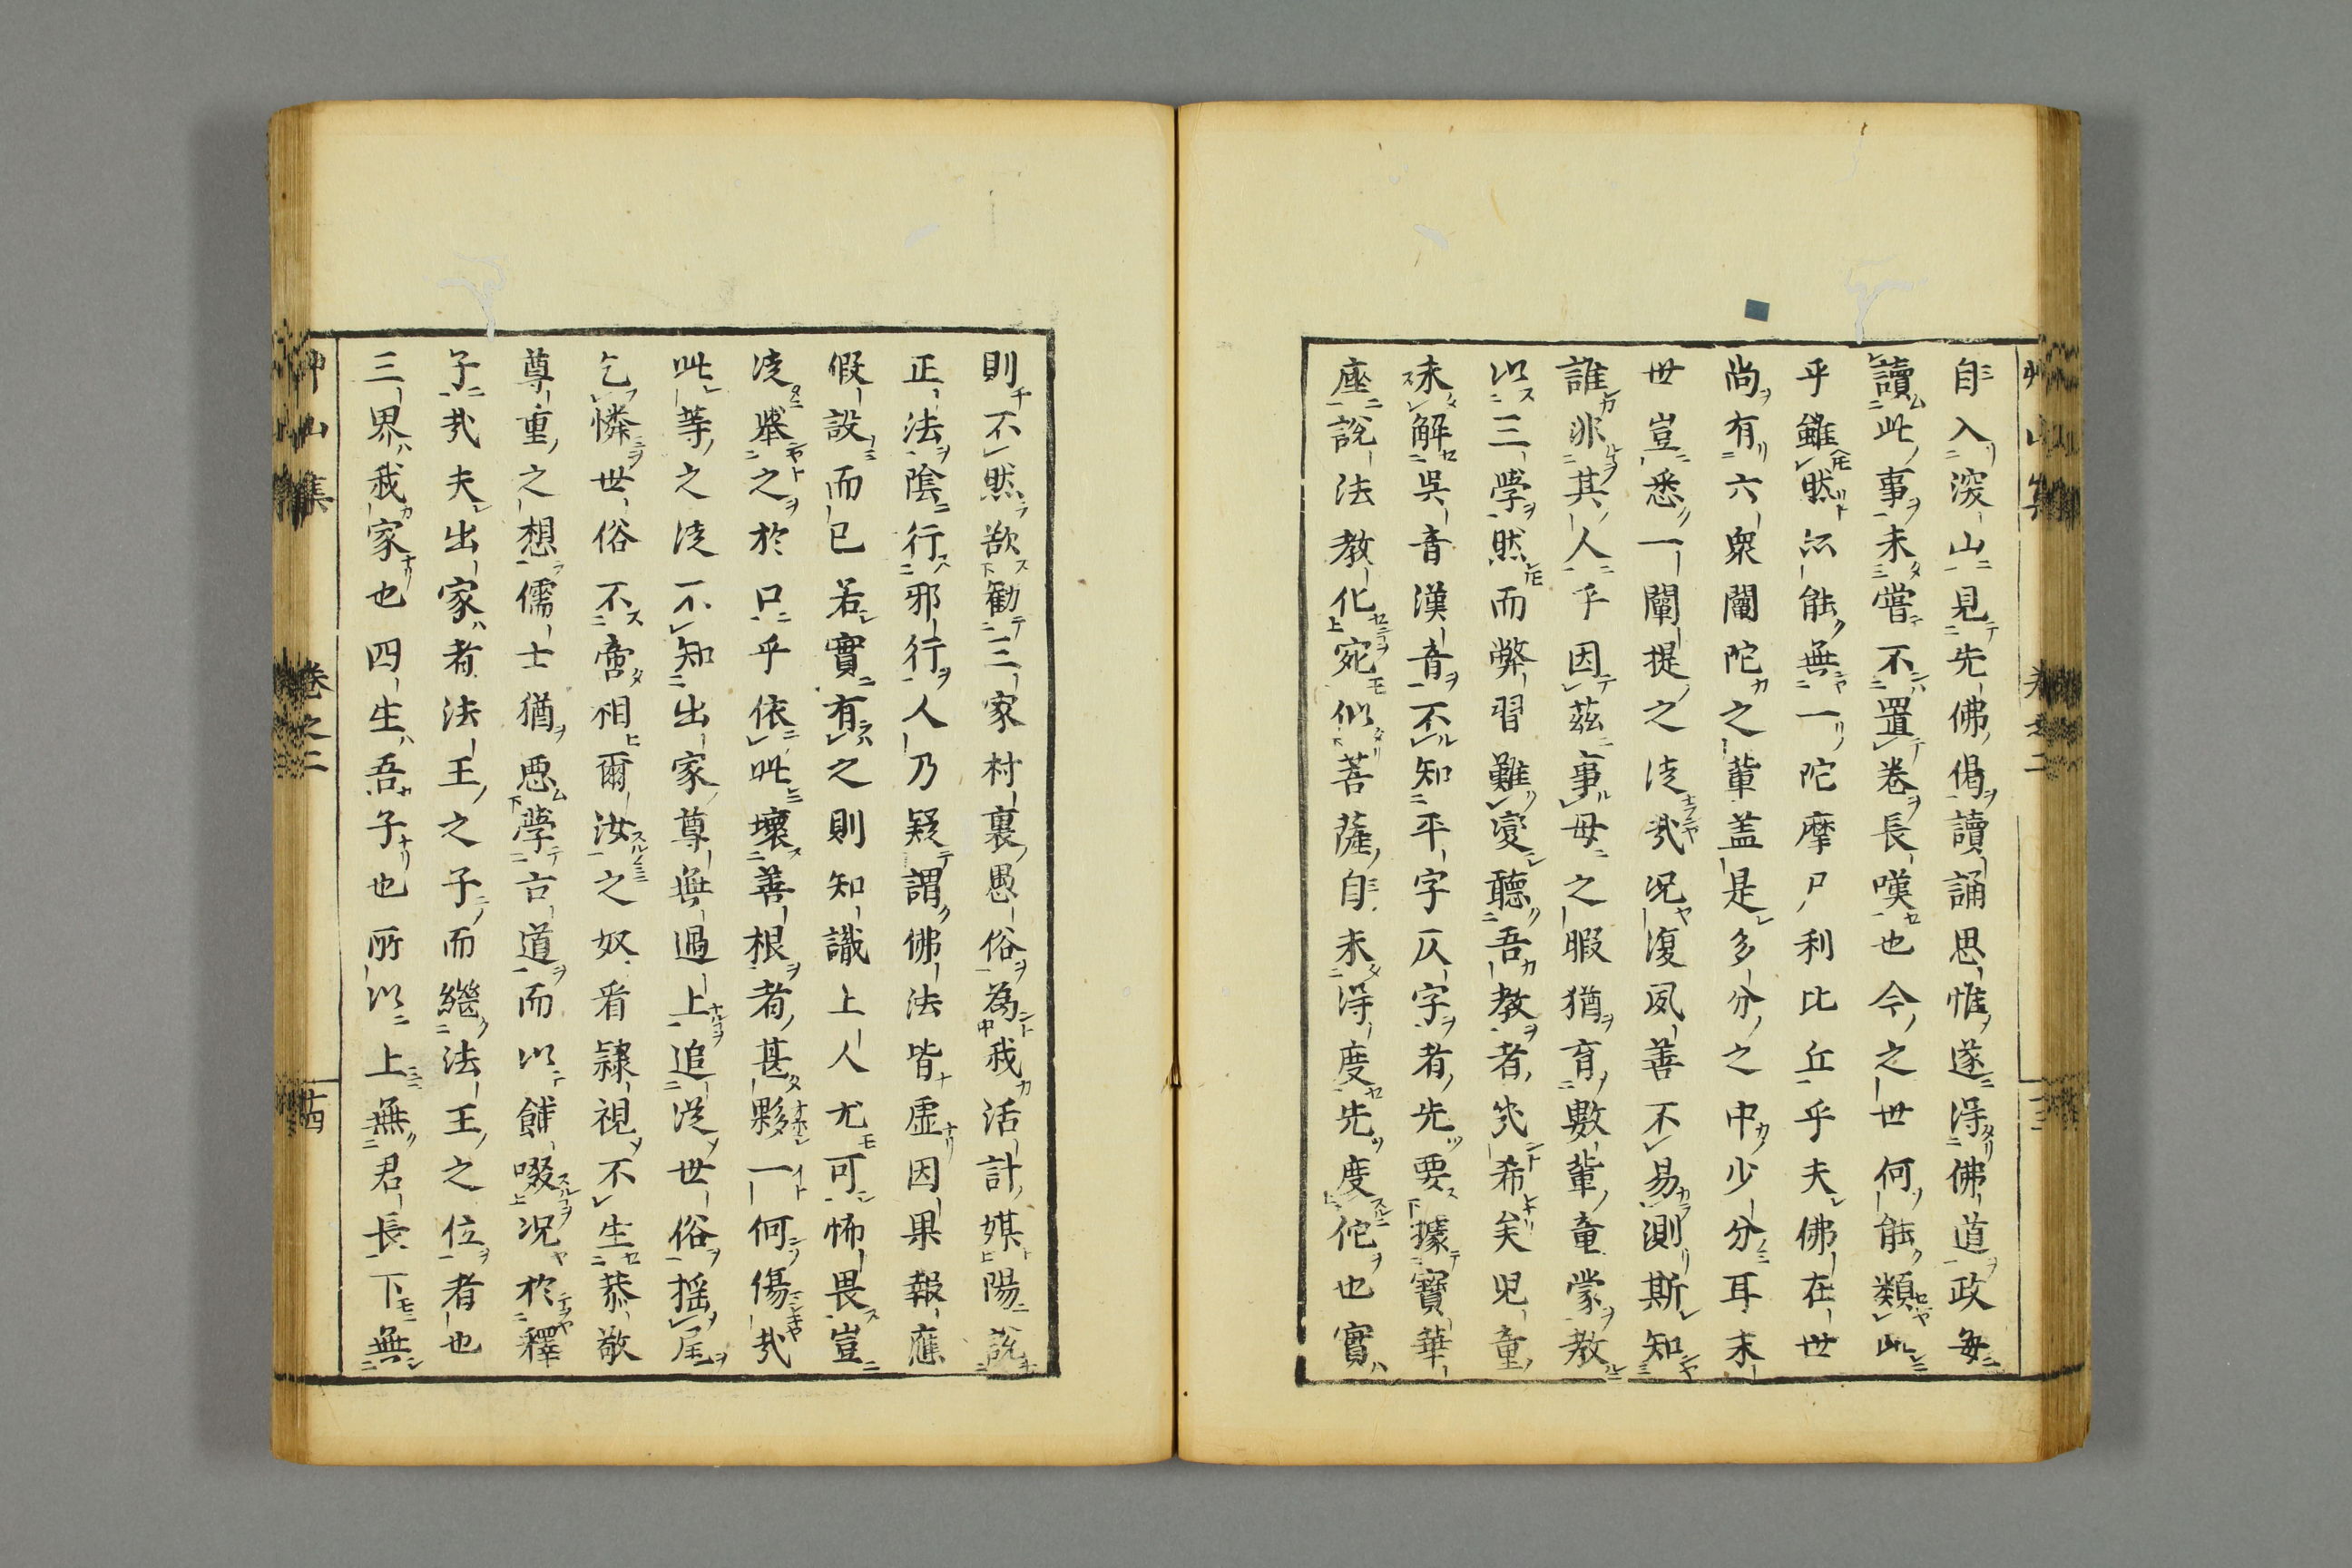 自入深山見先佛偈讀誦思惟遂得佛道政毎
讀此事未嘗不置卷長嘆也今之世何能類此
乎雖然㒵能無一陀摩尸利比丘乎夫佛在世
尚有六衆闡陀之輩盖是多分之中少分耳末
世豈悉一闡提之徒哉况復夙善不易測斯知
誰非其人乎因茲事毋之暇猶育數輩童蒙教
以三學然而弊習難変聽吾教者㡬希矣児童
未解吳音漢音不知平字仄字者先要據寳華
座說法教化宛似菩薩自未得度先度佗也實
則不然欲勸三家村裏愚俗為我活計媒陽說
正法陰行邪行人乃疑謂佛法皆虛因果報應
假設而已若實有之則知識上人尤可怖畏豈
徒舉之於口乎依此壞善根者甚夥一何傷哉
此等之徒不知出家尊無過上追從世俗揺尾
乞憐世俗不啻相爾汝之奴看隷視不生恭敬
尊重之想儒士猶惡學古道而以餔啜况於釋
子哉夫出家者法王之子而繼法王之位者也
三界我家也四生吾子也所以上無君長下無
卷之二
十四